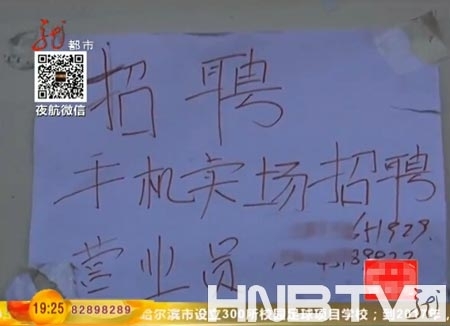 都市
夜航微信
招聘
手机卖场招聘
营业员
651929
19:25 82898289
哈尔滨市设立300所校园足球项目学校；到20
HNBTV